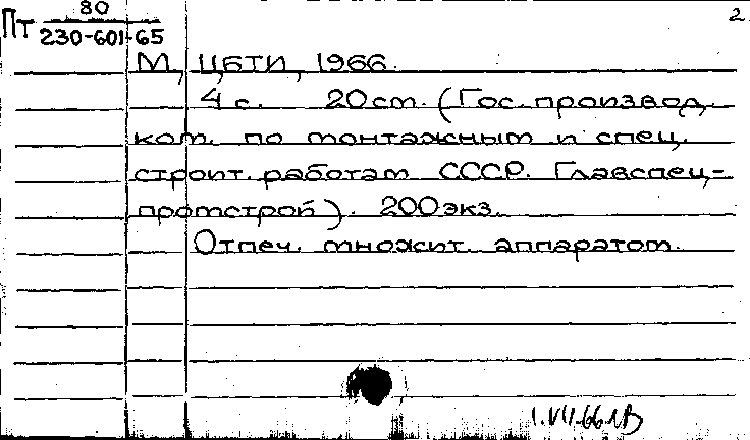 80
2
Пт 230-601-65
М, ЦБТИ, 1966.
4 с. 20 см. (Гос. производ.
ком. по монтажным и спец.
строит. работам СССР. Главспец-
промстрой). 200 экз.
Отпеч. множит. аппаратом.
1.VII.66